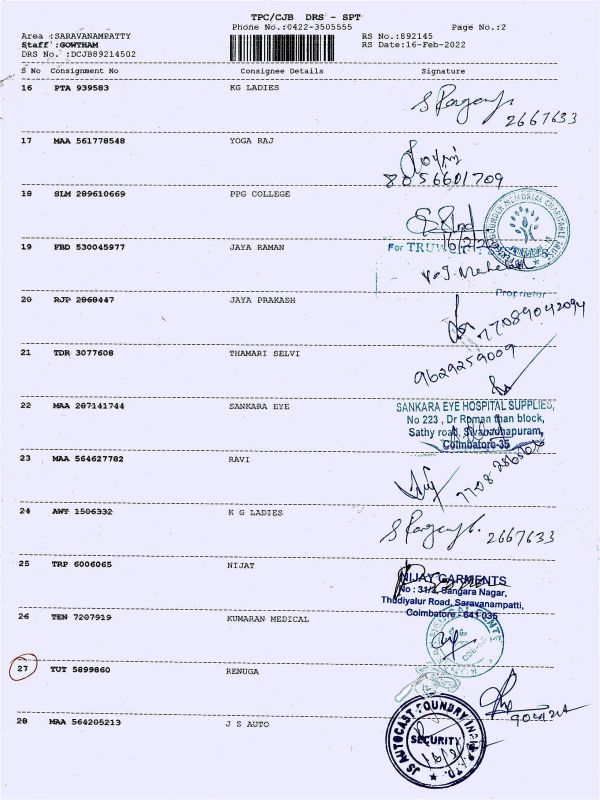 TPC/CJB DRS - SPT
Phone No.:0422-3505555
Page No.:2
Area :SARAVANAMPATTY
RS No.:892145
Staff :GOWTHAM
RS Date:16-Feb-2022
DRS No. :DCJB89214502
S No Consignment No Consignee Details Signature
16 PTA 939583 KG LADIES
2667633
17 MAA 561778548 YOGA RAJ
8056601709
18 SLM 289610669 PPG COLLEGE
16/2/22
19 FBD 530045977 JAYA RAMAN
For TRU
Proprietor
20 RJP 2868447 JAYA PRAKASH
77089042094
21 TDR 3077608 THAMARI SELVI
9629259009
22 MAA 287141744 SANKARA EYE
SANKARA EYE HOSPITAL SUPPLIES,
No 223 , Dr Roman than block,
Sathy road, Sivanandhapuram,
Coimbatore-35
23 MAA 564627782 RAVI
24 AWT 1506332 K G LADIES
2667633
25 TRP 6006065 NIJAT
NIJAY GARMENTS
No : 31/2, Sangara Nagar,
Thudiyalur Road, Saravanampatti,
Coimbatore - 641 035
26 TEN 7207919 KUMARAN MEDICAL
27 TUT 5899860 RENUGA
28 MAA 564205213 J S AUTO
JS AUTOCAST FOUNDRY INDIA P LTD.
SECURITY